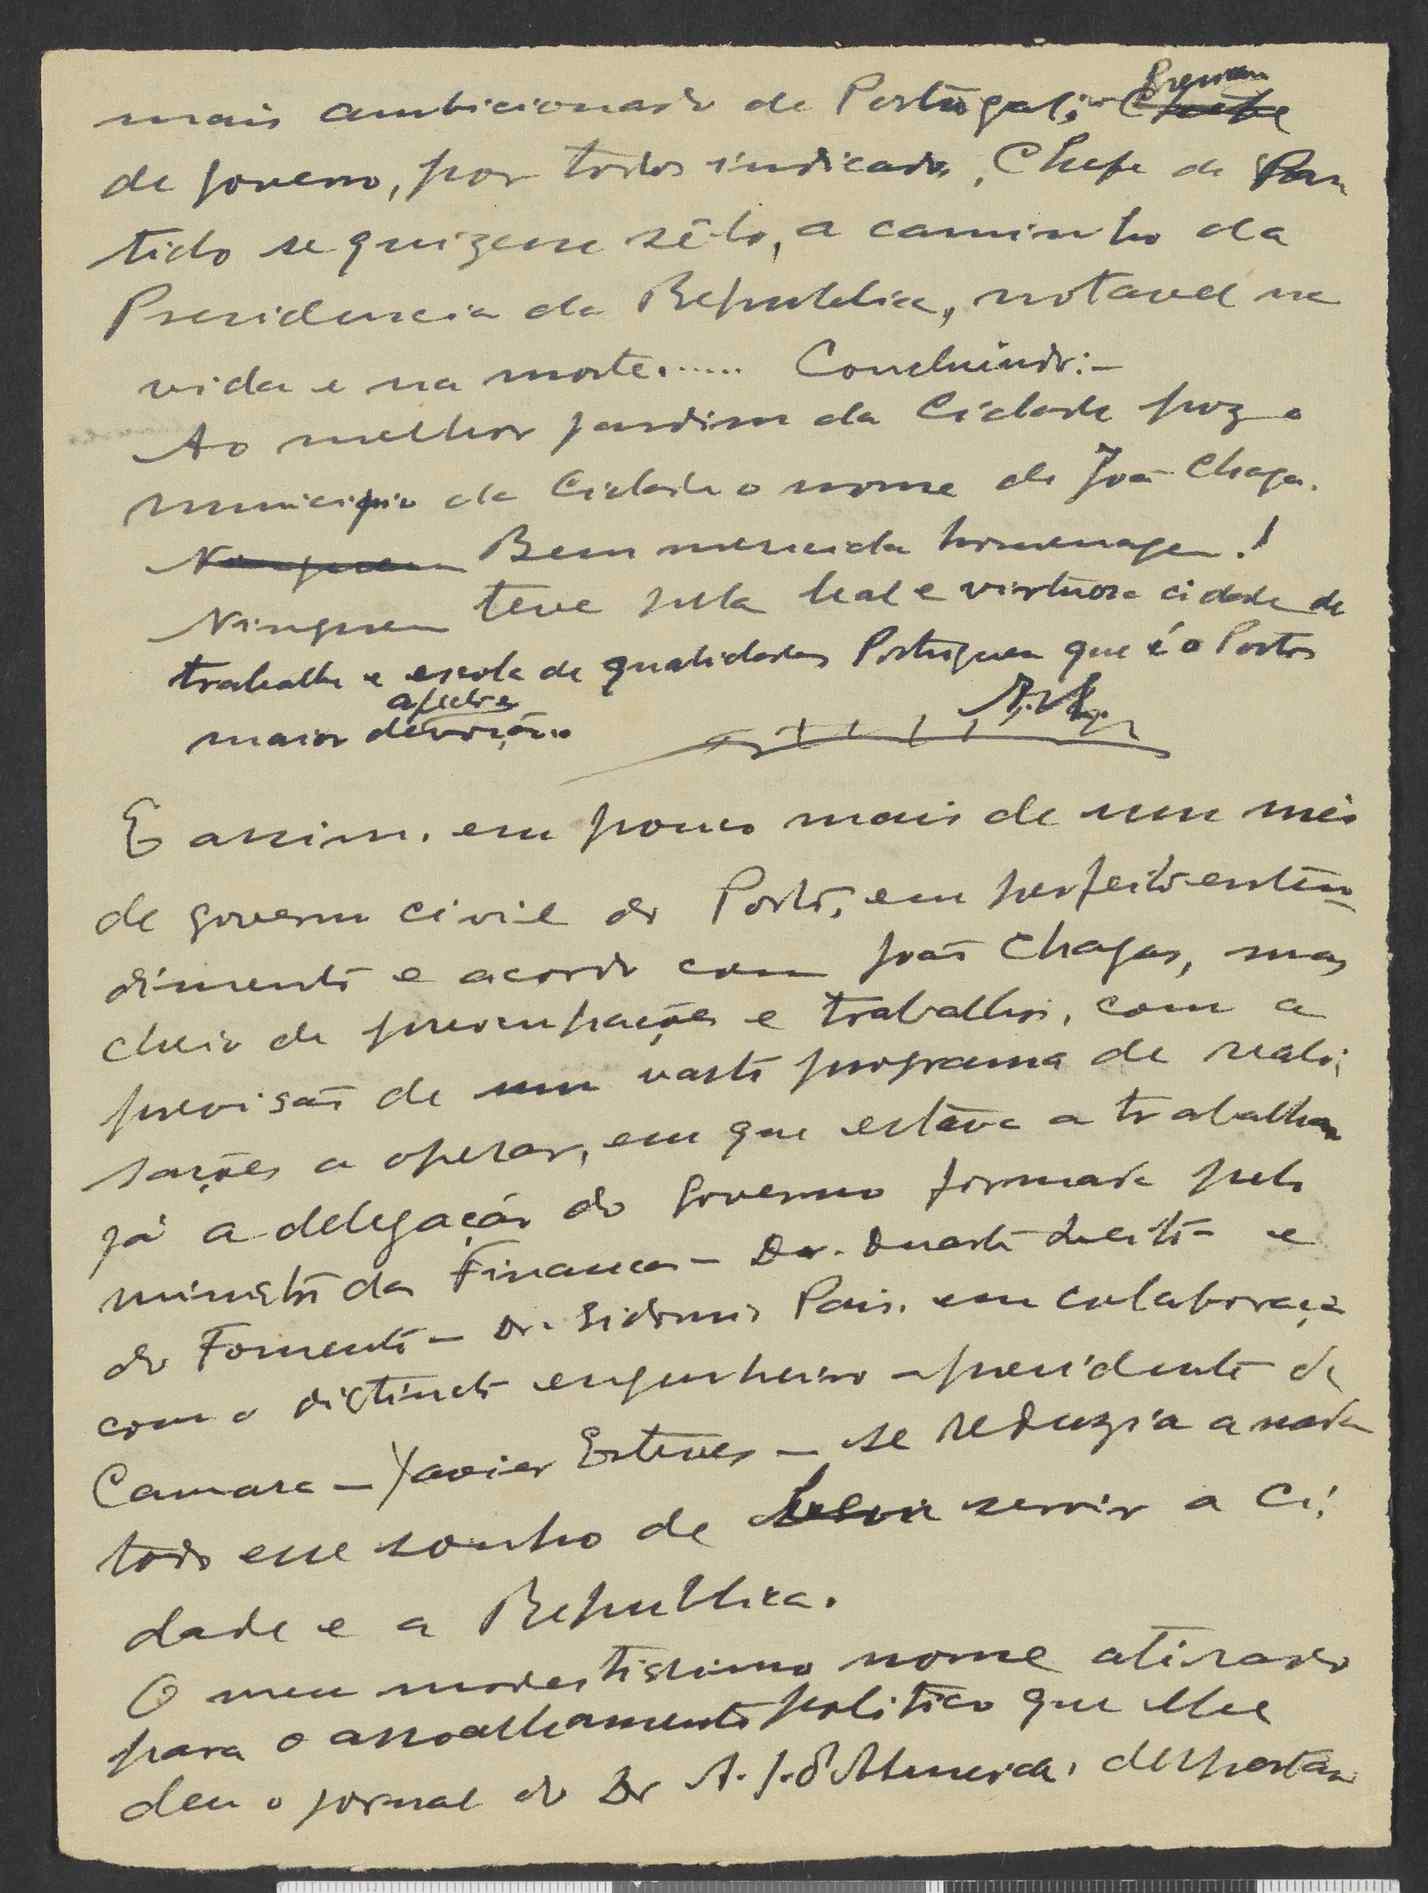 mais ambicionado de Portugal;
de governo, por todos indicado, Chefe de Par
tido se quizesse sê-lo, a caminho da
Presidencia da Republica, notavel na
vida e na morte...... Concluindo:-
Ao melhor jardim da Cidade poz o
municipio da Cidade o nome de João Chagas.
Ninguem Bem merecida homenagem!
Ninguem teve pela leal e virtuosa cidade de
trabalho e escola de qualidades Portuguesas que é o Porto
maior devoção.
E assim, em pouco mais de um mês
de governo civil do Porto, em perfeito enten-
dimento e acordo com João Chagas, mas
cheio de preocupações e trabalhos, com a
previsão de um vasto programa de reali-
sações a operar, em que estava a trabalhar
já a delegação do governo formada pelo
ministro das Finanças - Dr. Duarte Leite - e
do Fomento - Dr. Sidonio Pais, em colaboração
com o distincto engenheiro - presidente da
Camara - Xavier Esteves - se reduzia a nada
todo esse sonho de servir a Ci-
dade e a Republica.
O meu modestissimo nome atirado
para o assoalhamento politico que lhe
deu o jornal do Dr A. J. d'Almeida, despertar